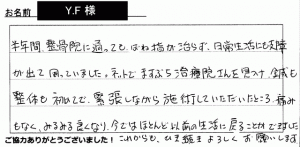 お名前 Y.F 様
半年間整骨院に通っても、ばね指が治らず、日常生活にも支障
が出て困っていました。ネットでますぶち治療院さんを見つけ、鍼も
整体も初めてで、緊張しながら施術していただいたところ、痛み
もなく、みるみる良くなり、今ではほとんど以前の生活に戻ることができました
ご協力ありがとうございました! これからも、ひき続きよろしくお願いします